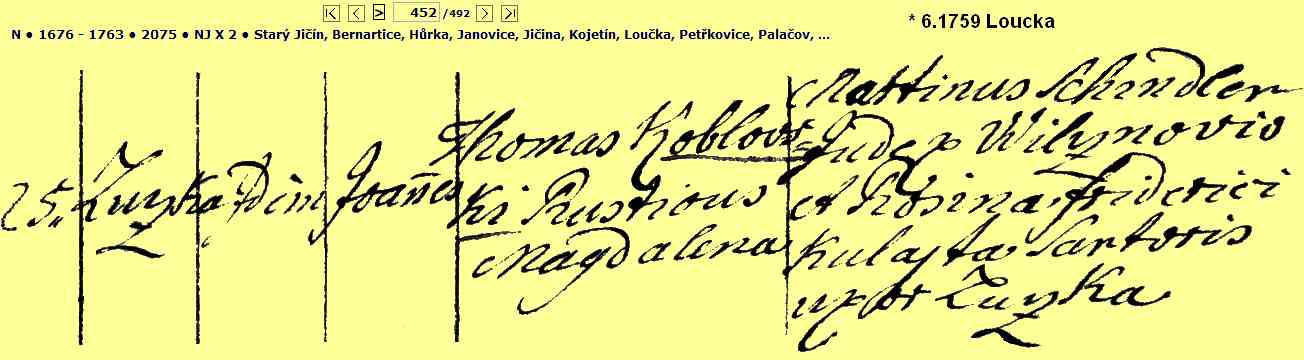 452 /492
* 6.1759 Loucka
N ● 1676 - 1763 ● 2075 ● NJ X 2 ● Starý Jičín, Bernartice, Hůrka, Janovice, Jičina, Kojetín, Loučka, Petřkovice, Palačov, ...
25. Luzka Joannes
Thomas Koblovs
ki Rusticus
Magdalena
Martinus Schindler
Judex
et Rosina Friderici
Kulajta Sartoris
uxor Luzka